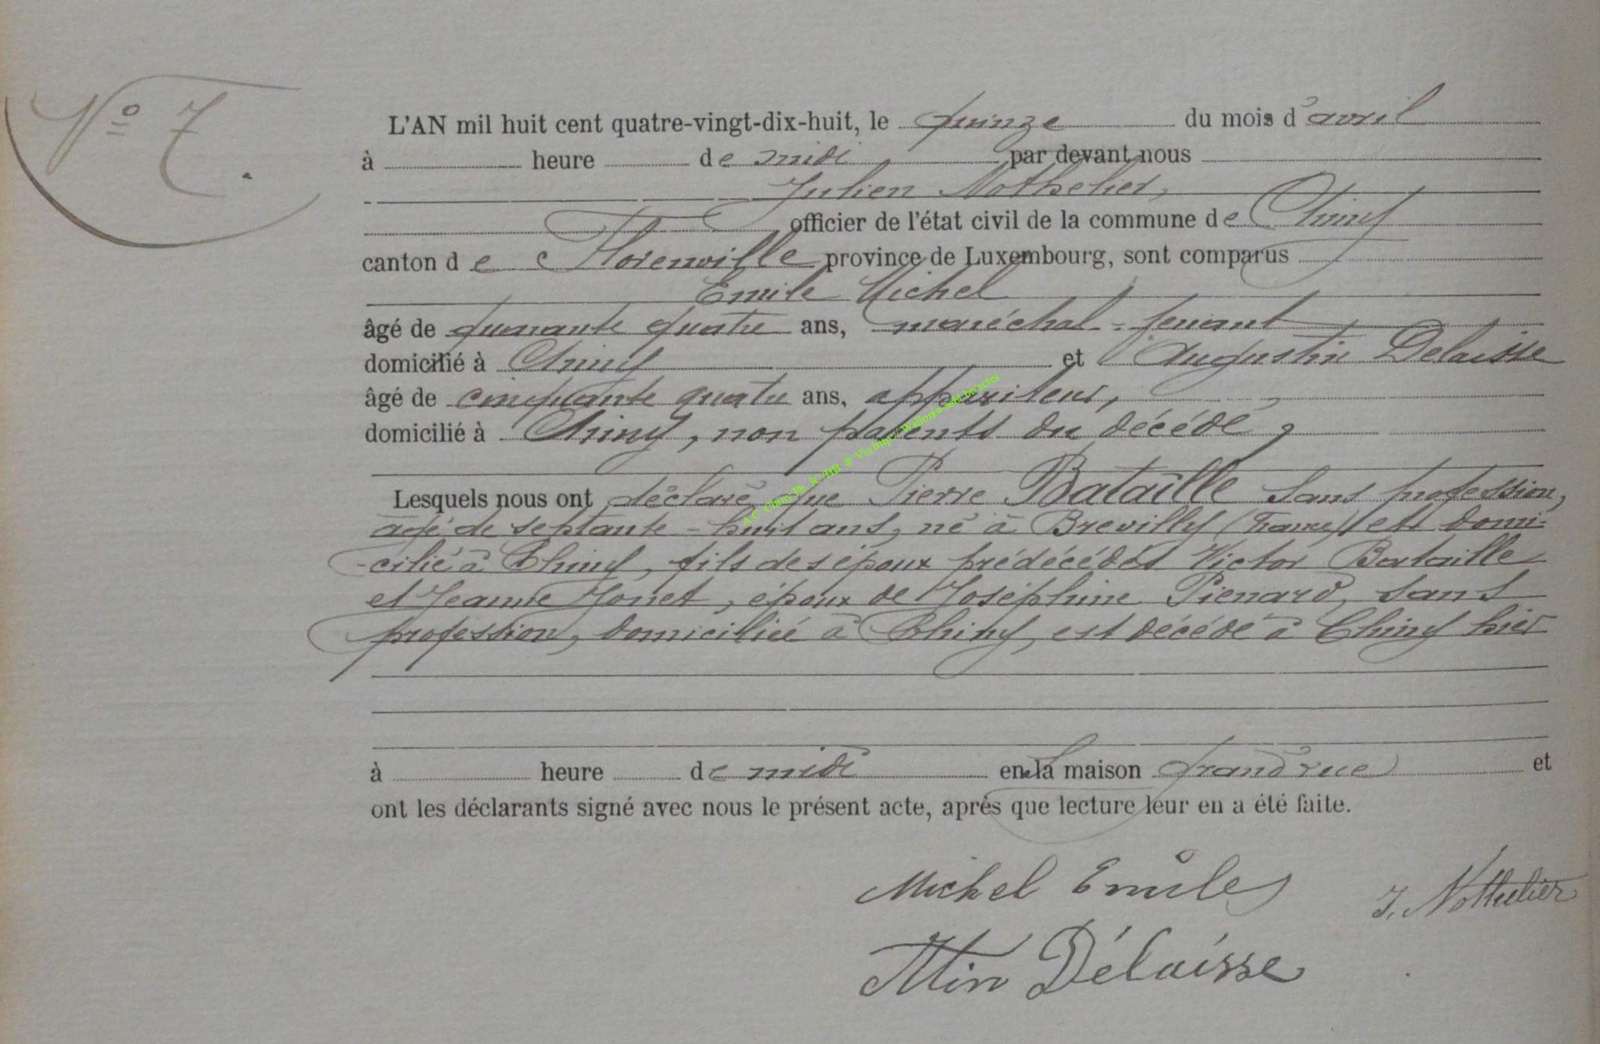 Nº 7.
L'AN mil huit cent quatre-vingt-dix-huit, le quinze du mois d'avril
à heure de midi par devant nous
Julien Nothelier,
officier de l'état civil de la commune de Chiny
canton de Florenville province de Luxembourg, sont comparus
Emile Michel
âgé de quarante quatre ans, maréchal-ferrant
domicilié à Chiny et Augustin Delaisse
âgé de cinquante quatre ans, appariteur,
domicilié à Chiny, non parents du décédé,
Lesquels nous ont déclaré que Pierre Bataille sans profession,
agé de septante-huit ans, né à Brevilly (France) et domi-
-cilié à Chiny, fils des époux prédécédés Victor Bataille
et Jeanne Jonet, époux de Joséphine Pienard, sans
profession, domiciliée à Chiny, est décédé à Chiny hier
à heure de midi en la maison grand'rue et
ont les déclarants signé avec nous le présent acte, après que lecture leur en a été faite.
Michel Emile
J. Nothelier
Atin Délaisse